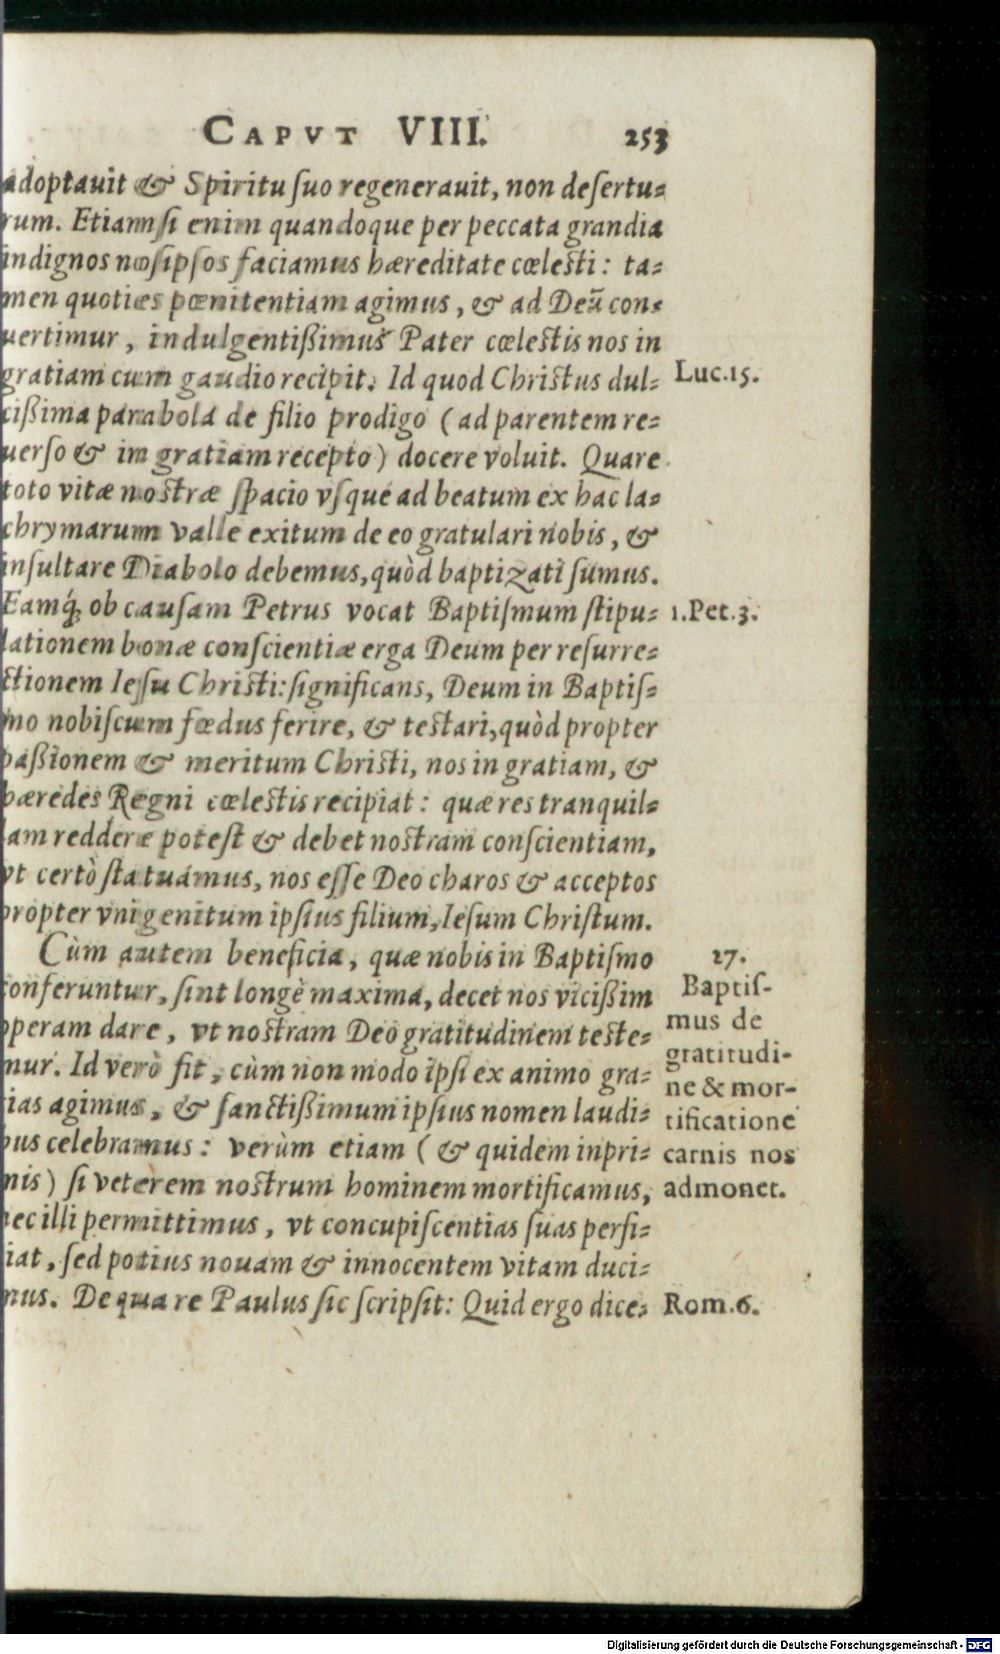 CAPVT VIII. 253
adoptauit & Spiritu ſuo regenerauit, non deſertu-
rum. Etiamſi enim quandoque per peccata grandia
indignos noſipſos faciamus hæreditate cœleſti: ta-
men quoties pœnitentiam agimus, & ad Deū con-
uertimur, indulgentißimus Pater cœleſtis nos in
gratiam cum gaudio recipit. Id quod Chriſtus dul-
Luc. 15.
cißima parabola de filio prodigo (ad parentem re-
uerſo & in gratiam recepto) docere voluit. Quare
toto vitæ noſtræ ſpacio vſque ad beatum ex hac la-
chrymarum valle exitum de eo gratulari nobis, &
inſultare Diabolo debemus, quòd baptizati ſumus.
Eamq́; ob cauſam Petrus vocat Baptiſmum ſtipu-
1. Pet. 3.
lationem bonæ conſcientiæ erga Deum per reſurre-
ctionem Ieſu Chriſti: ſignificans, Deum in Baptiſ-
mo nobiſcum fœdus ferire, & teſtari, quòd propter
paßionem & meritum Chriſti, nos in gratiam, &
hæredes Regni cœleſtis recipiat: quæ res tranquil-
lam reddere poteſt & debet noſtram conſcientiam,
vt certò ſtatuamus, nos eſſe Deo charos & acceptos
propter vnigenitum ipſius filium, Ieſum Chriſtum.
Cùm autem beneficia, quæ nobis in Baptiſmo
conferuntur, ſint longè maxima, decet nos vicißim
operam dare, vt noſtram Deo gratitudinem teſte-
mur. Id verò fit, cùm non modo ipſi ex animo gra-
tias agimus, & ſanctißimum ipſius nomen laudi-
bus celebramus: verùm etiam (& quidem inpri-
mis) ſi veterem noſtrum hominem mortificamus,
nec illi permittimus, vt concupiſcentias ſuas perfi-
ciat, ſed potius nouam & innocentem vitam duci-
mus. De qua re Paulus ſic ſcripſit: Quid ergo dice-
27.
Baptiſ-
mus de
gratitudi-
ne & mor-
tificatione
carnis nos
admonet.
Rom. 6.
Digitalisierung gefördert durch die Deutsche Forschungsgemeinschaft - DFG